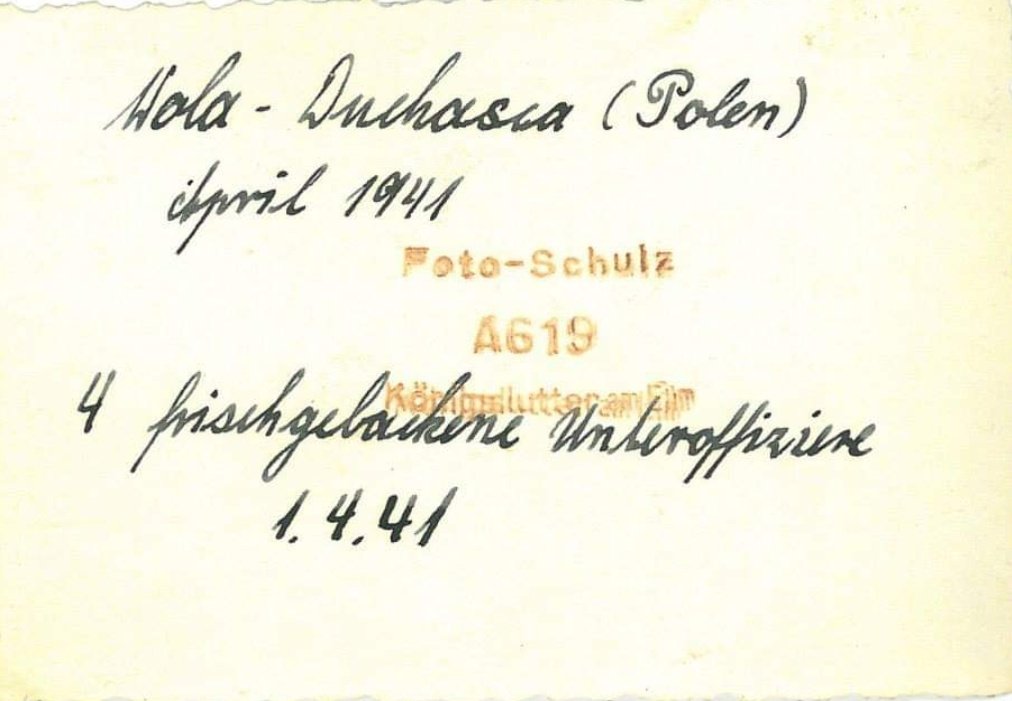 Wola - Duchasca (Polen)
April 1941
Foto-Schulz
A619
Königslutter am Elm
4 frischgebackene Unteroffiziere
1.4.41